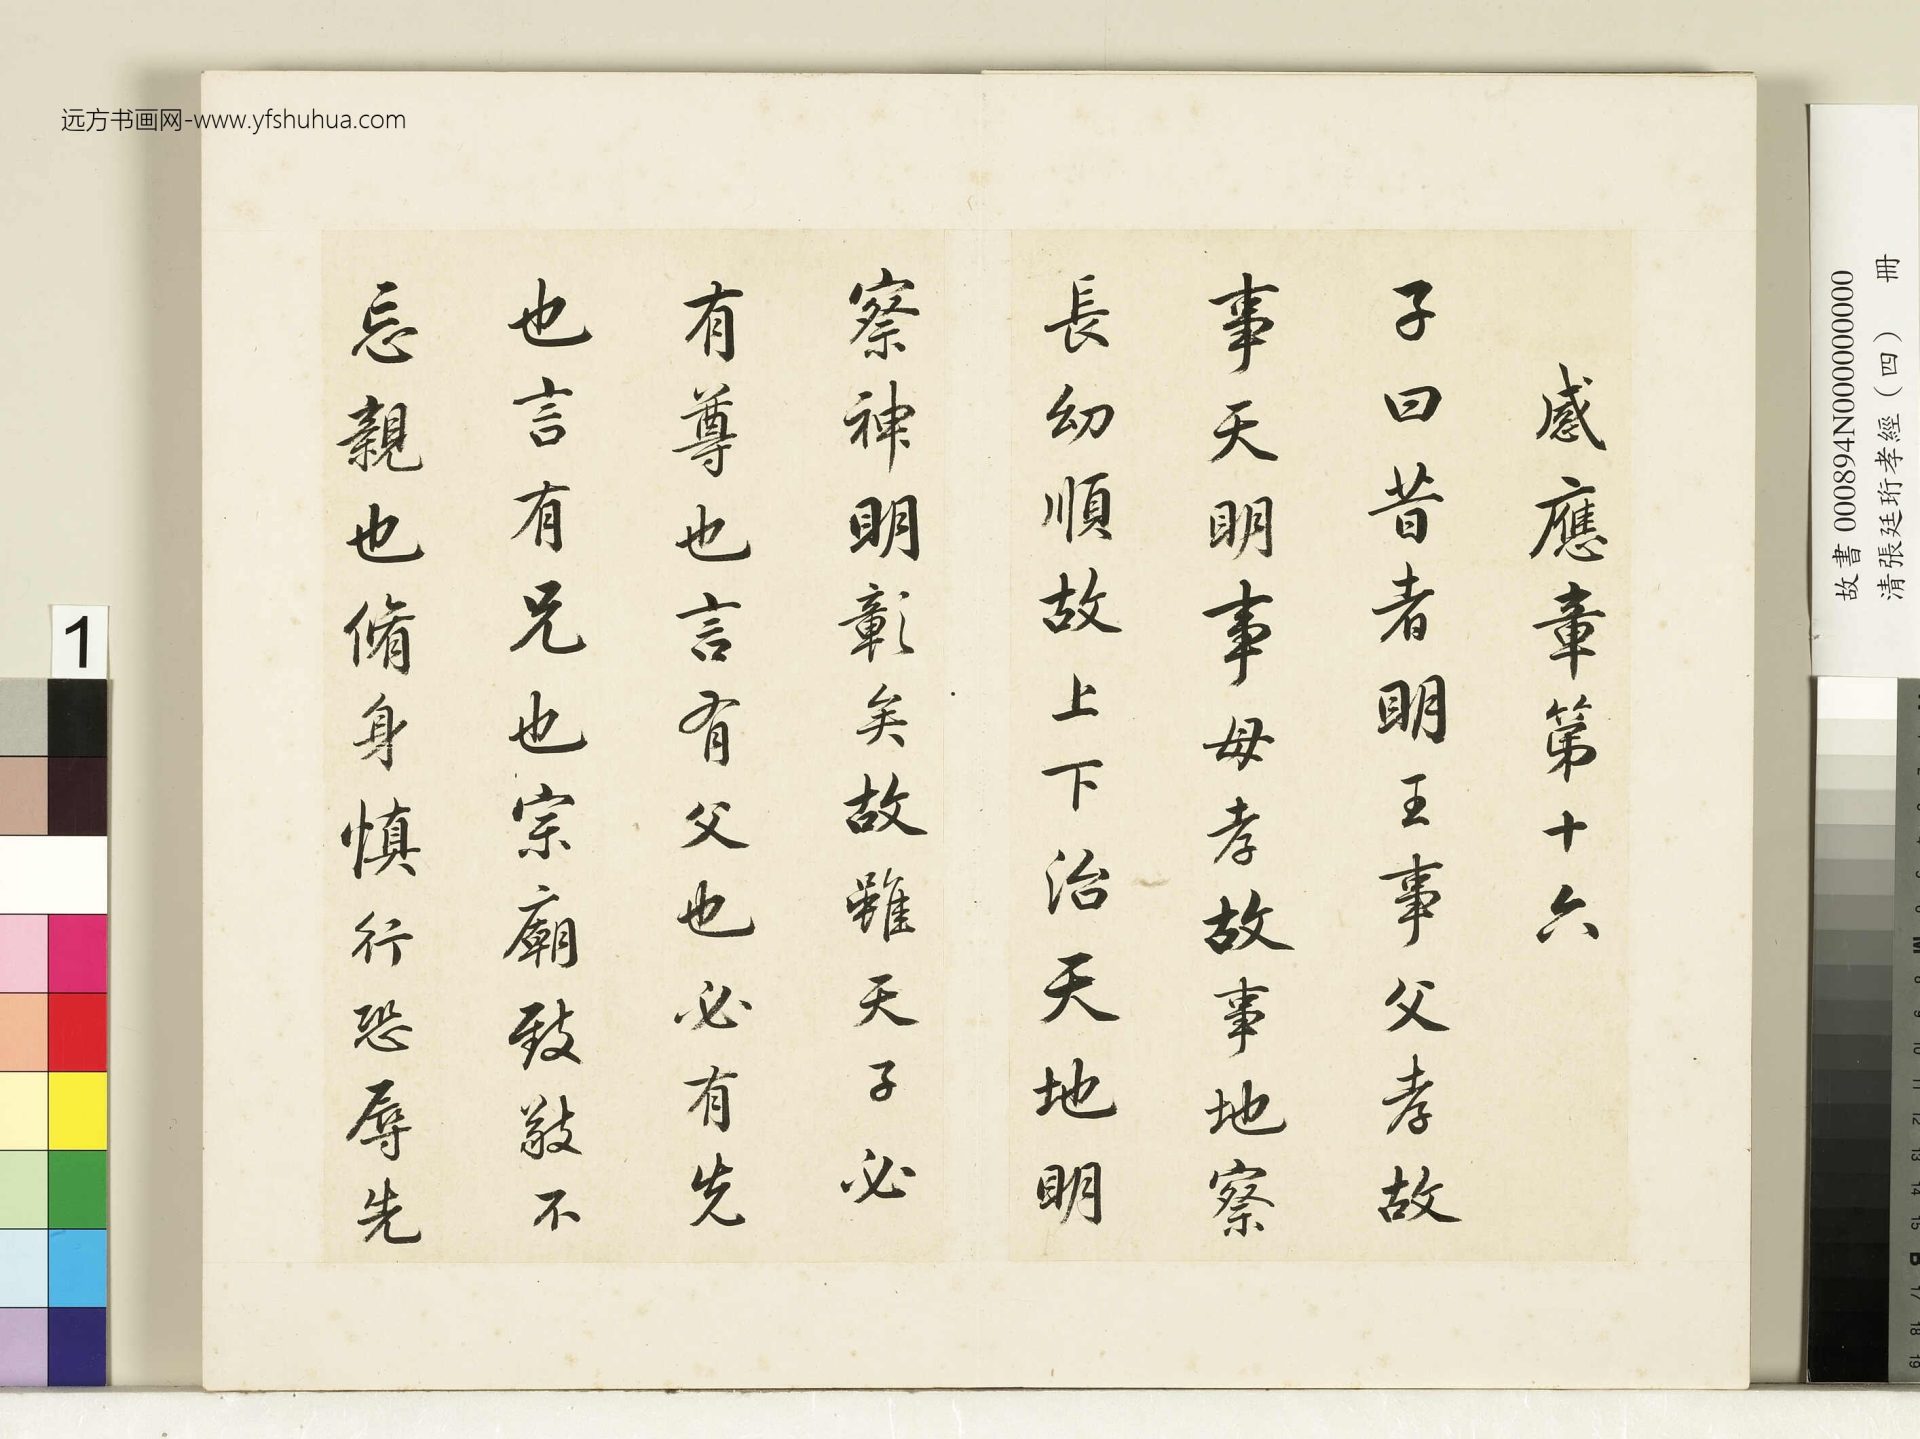 感應章第十六
子曰昔者明王事父孝故
事天明事母孝故事地察
長幼順故上下治天地明
察神明彰矣故雖天子必
有尊也言有父也必有先
也言有兄也宗廟致敬不
忘親也脩身慎行恐辱先
远方书画网-www.yfshuhua.com
故書 000894N000000000
清張廷珩孝經(四) 冊
1